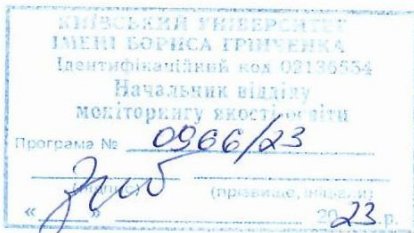 КИЇВСЬКИЙ УНІВЕРСИТЕТ
ІМЕНІ БОРИСА ГРІНЧЕНКА
Ідентифікаційний код 02136554
Начальник відділу
моніторингу якості освіти
Програма № 0966/23
(підпис) (прізвище, ініціали)
« » 2023 р.